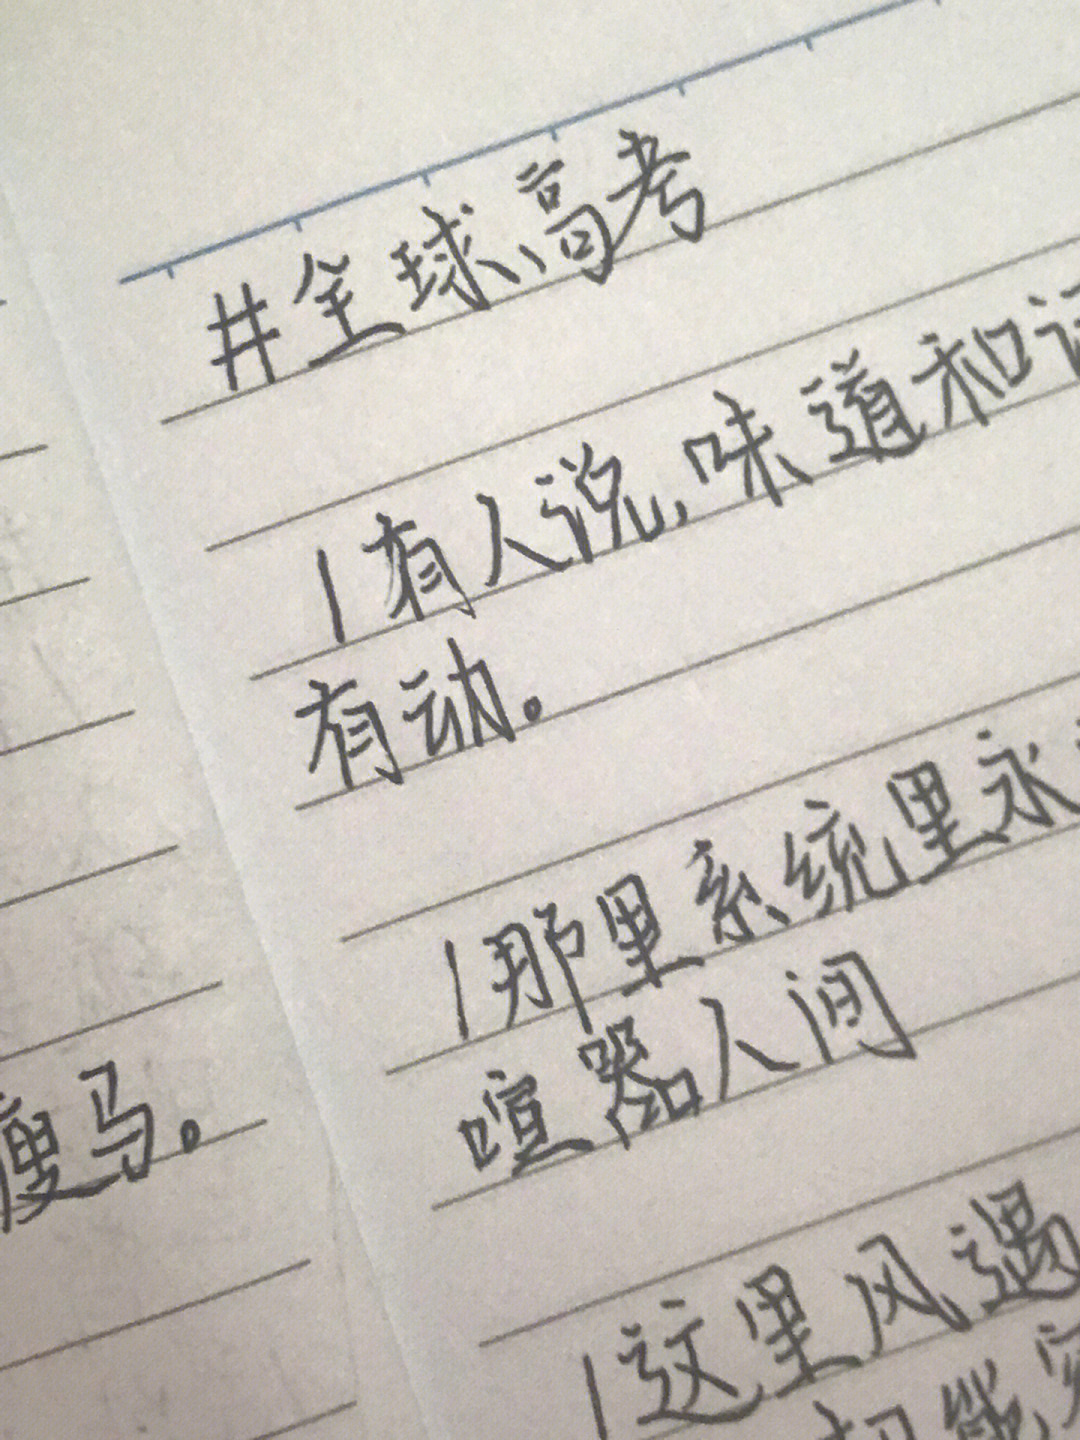 #全球高考
/有人说,味道和
有动。
/那里系统里永
喧嚣人间
/这里风遇
能
瘦马。